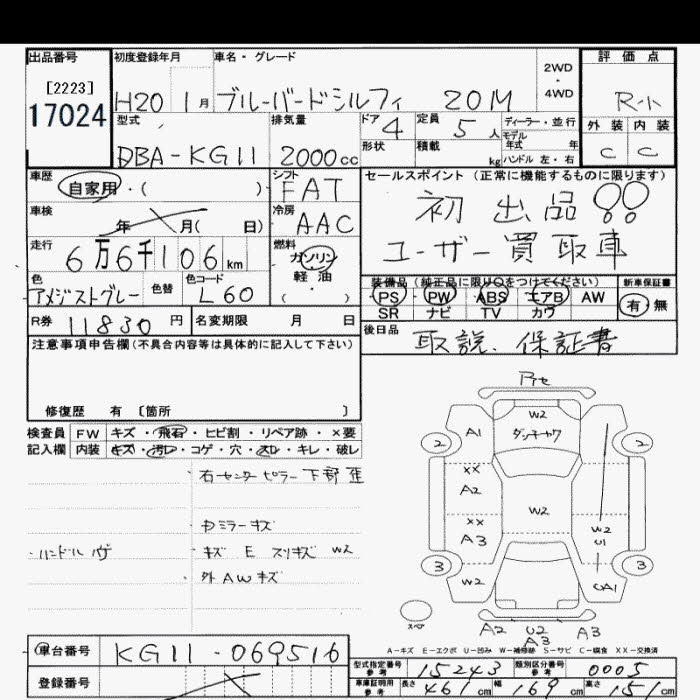 出品番号 初度登録年月 車名・グレード 評価点
[2223]
17024
H20 1月 ブルーバードシルフィ 20M
2WD・4WD
R-小
型式 排気量 ドア 4 定員 5人 ディーラー・並行
DBA-KG11 2000cc
形状 積載 kg モデル年式 年
ハンドル 左・右
外装 内装
C C
車歴 自家用・( )
シフト FAT
セールスポイント(正常に機能するものに限ります)
初出品!!
ユーザー買取車
車検 年 月( 日)
冷房 AAC
走行 6万6千106km
燃料 ガソリン 軽・油 ( )
色 アメジストグレー 色替 色コード L60
装備品(純正品に限り○をつけてください) 新車保証書
PS PW ABS エアB AW
SR ナビ TV カワ
有・無
R券 11830円 名変期限 月 日
後日品 取説、保証書
注意事項申告欄(不具合内容等は具体的に記入して下さい)
修復歴 有 〔箇所 〕
検査員記入欄
FW キズ・飛石・ヒビ割・リペア跡・×要
内装 キズ・汚レ・コゲ・穴・スレ・キレ・破レ
・右センターピラー下部
・Dミラーキズ
・ハンドル
・キズ E スリキズ W2
・外AWキズ
アセ
W2
A1
2 2
XX
A2
W2
XX
A3
W2
U1
3 3
W2
UA1
A2 U2 A3
A3
A-キズ E-エクボ U-凹み W-補修跡 S-サビ C-腐食 XX-交換済
車台番号 KG11-069516
登録番号
型式指定番号 参考 15243 類別区分番号 参考 0005
車庫証明用 参考 長さ 461cm 幅 169cm 高さ 51cm